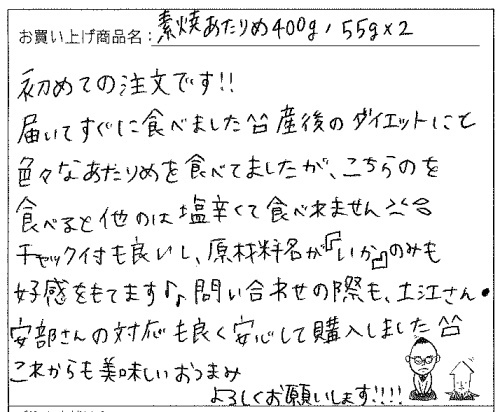 お買い上げ商品名：素焼あたりめ400g, 55g×2
初めての注文です!!
届いてすぐに食べました^^産後のダイエットにと
色々なあたりめを食べてましたが、こちらのを
食べると他のは塩辛くて食べれません
チャック付も良いし、原材料名が『いか』のみも
好感をもてます♪♪問い合わせの際も、土江さん・
安部さんの対応も良く安心して購入しました^^
これからも美味しいおつまみ
よろしくお願いします!!!!